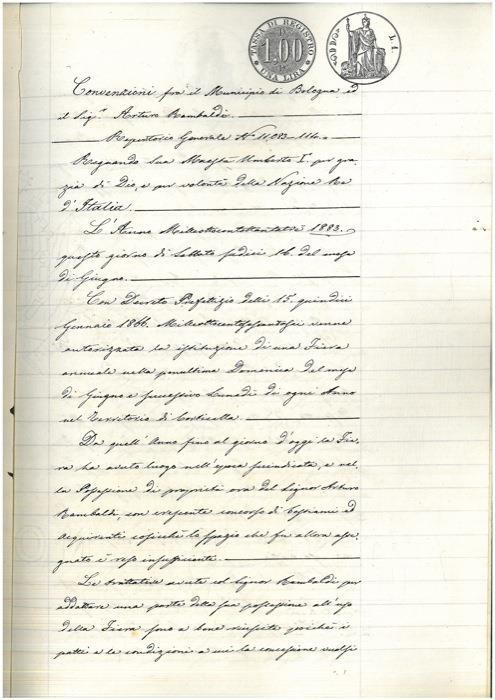 TASSA DI REGISTRO
1.00
UNA LIRA
L. 1.
Convenzioni fra il Municipio di Bologna ed
il Sig.r Arturo Rambaldi.
Repertorio Generale N.o 11,083 - 114.
Regnando Sua Maestà Umberto I.o per gra-
zia di Dio, e per volontà della Nazione Re
d'Italia.
L'Anno Milleottocentottantatrè 1883.
questo giorno di Sabbato sedici 16. del mese
di Giugno.
Con Decreto Prefettizio delli 15. quindici
Gennaio 1866. Milleottocentosessantasei venne
autorizzata la istituzione di una Fiera
annuale nella penultima Domenica del mese
di Giugno e successivo Lunedì di ogni Anno
nel Territorio di Corticella.
Da quell'Anno fino al giorno d'oggi la Fie-
ra ha avuto luogo nell'epoca preindicata, e nel-
la Possessione di proprietà ora del Signor Arturo
Rambaldi, con crescente concorso di bestiami ed
acquirenti cosicchè lo spazio che fu allora asse-
gnato è reso insufficiente.
Le trattative avute col Signor Rambaldi per
addattare una parte della sua possessione all'uso
della Fiera sono a bene riuscite poichè i
patti e le condizioni a cui la concessione